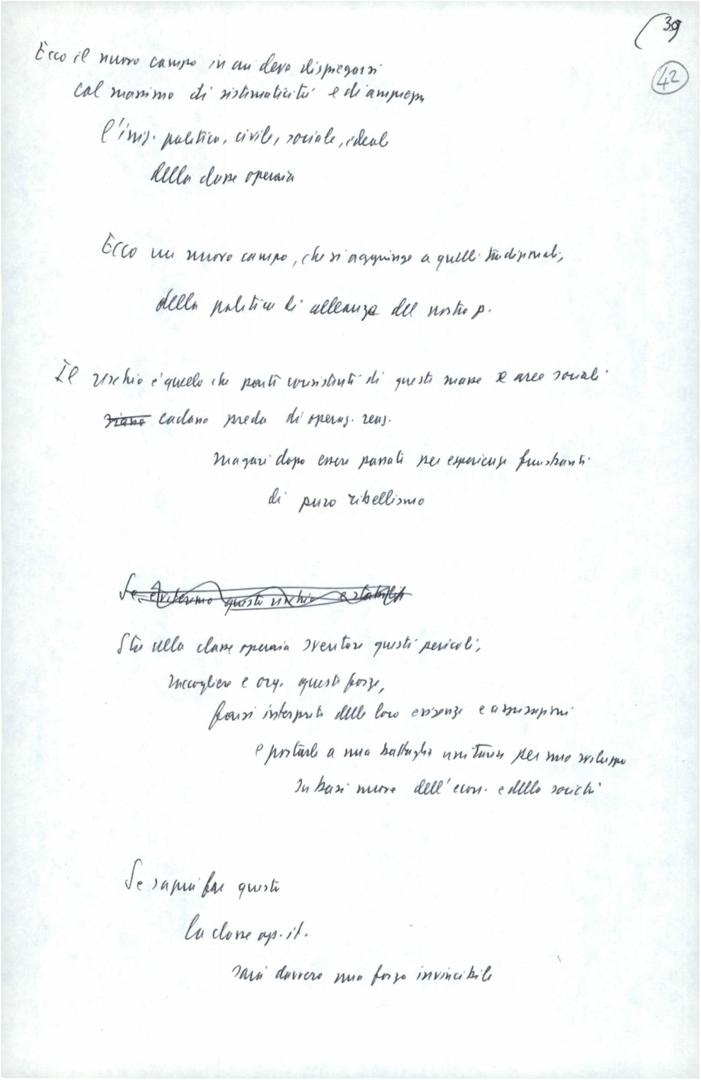 39
42
Ecco il nuovo campo in cui deve dispiegarsi
col massimo di sistematicità e di ampiezza
l'iniz. politica, civile, sociale, ideale
della classe operaia
Ecco un nuovo campo, che si aggiunge a quelli tradizionali,
della politica di alleanza del nostro p.
Il rischio è quello che parti consistenti di queste masse e aree sociali
siano cadano preda di operaz. reaz.
magari dopo essere passati per esperienze frustranti
di puro ribellismo
Se eviteremo questo rischio e
Sta alla classe operaia sventare questi pericoli,
raccogliere e org. queste forze,
farsi interprete delle loro esigenze e aspirazioni
e portarle a una battaglia unitaria per uno sviluppo
su basi nuove dell'econ. e della società
Se saprà far questo
la classe op. it.
sarà davvero una forza invincibile